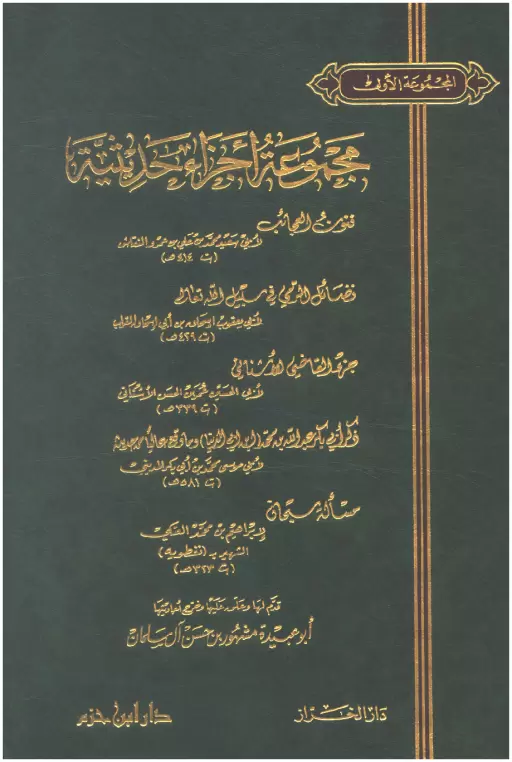 المجموعة الأولى
مجموعة أجزاء حديثية
فنون العجائب
لأبي سعيد محمد بن علي بن عمرو النقاش
(ت ٤١٤ هـ)
فضائل الرمي في سبيل الله تعالى
لأبي يعقوب إسحاق بن أبي إسحاق القراب
(ت ٤٢٩ هـ)
جزء القاضي الأشناني
لأبي الحسين عمر بن الحسن الأشناني
(ت ٣٣٩ هـ)
ذكر أبي بكر عبد الله بن محمد (ابن أبي الدنيا) وما وقع عاليًا من حديثه
لأبي موسى محمد بن أبي بكر المديني
(ت ٥٨١ هـ)
مسألة سبحان
لإبراهيم بن محمد العتكي
الشهير بـ (نفطويه)
(ت ٣٢٣ هـ)
قدم لها وعلق عليها وخرج أحاديثها
أبو عبيدة مشهور بن حسن آل سلمان
دار الخراز
دار ابن حزم